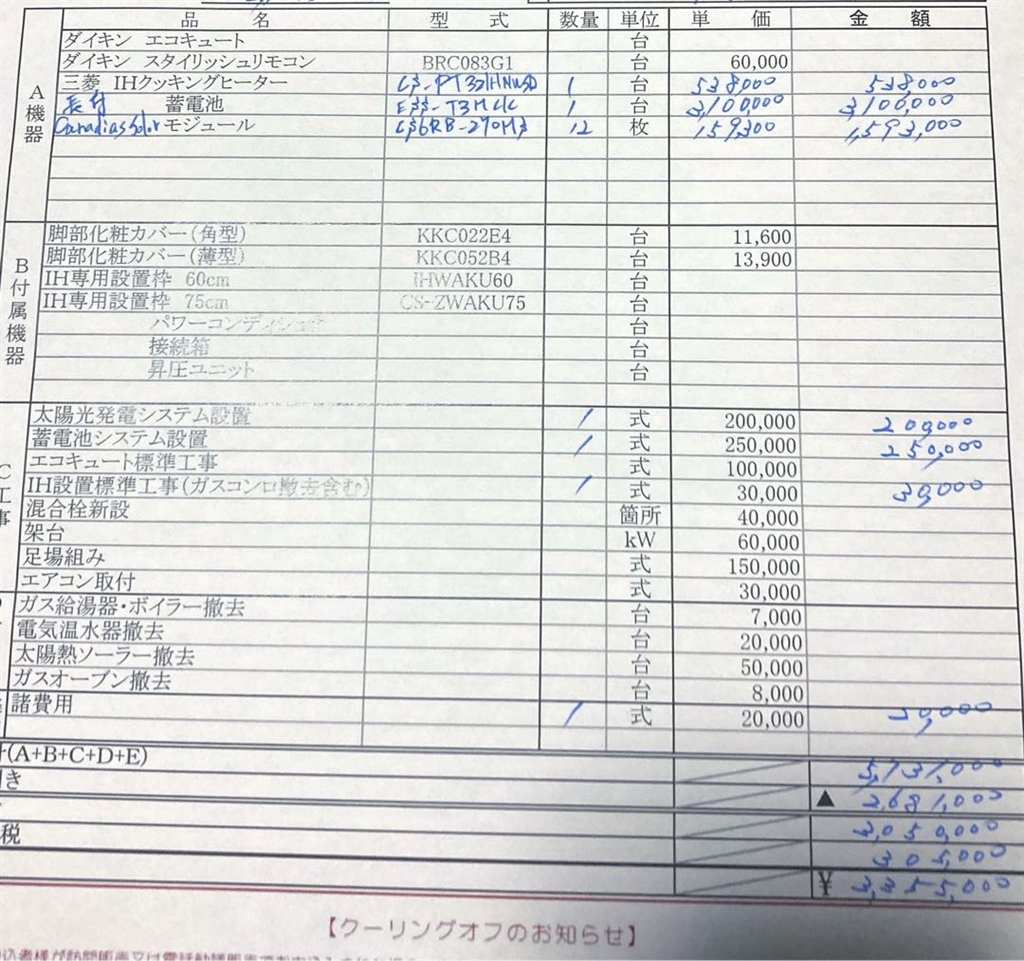 品 名 型 式 数量 単位 単 価 金 額
A 機器
ダイキン エコキュート 台
ダイキン スタイリッシュリモコン BRC083G1 台 60,000
三菱 IHクッキングヒーター CS-PT321HNWSD 1 台 538,000 538,000
長府 蓄電池 ESS-T3MCK 1 台 3,100,000 3,100,000
Canadiasolar モジュール CS6RB-270MS 12 枚 159,300 1,593,000
B 付属機器
脚部化粧カバー(角型) KKC022E4 台 11,600
脚部化粧カバー(薄型) KKC052B4 台 13,900
IH専用設置枠 60cm IHWAKU60 台
IH専用設置枠 75cm CS-ZWAKU75 台
パワーコンディショナ 台
接続箱 台
昇圧ユニット 台
C 工事
太陽光発電システム設置 1 式 200,000 200,000
蓄電池システム設置 1 式 250,000 250,000
エコキュート標準工事 式 100,000
IH設置標準工事(ガスコンロ撤去含む) 1 式 30,000 30,000
混合栓新設 箇所 40,000
架台 kW 60,000
足場組み 式 150,000
エアコン取付 式 30,000
ガス給湯器・ボイラー撤去 台 7,000
電気温水器撤去 台 20,000
太陽熱ソーラー撤去 台 50,000
ガスオーブン撤去 台 8,000
諸費用 1 式 20,000 20,000
(A+B+C+D+E) 5,731,000
き ▲ 2,681,000
3,050,000
税 305,000
¥ 3,355,000
【クーリングオフのお知らせ】